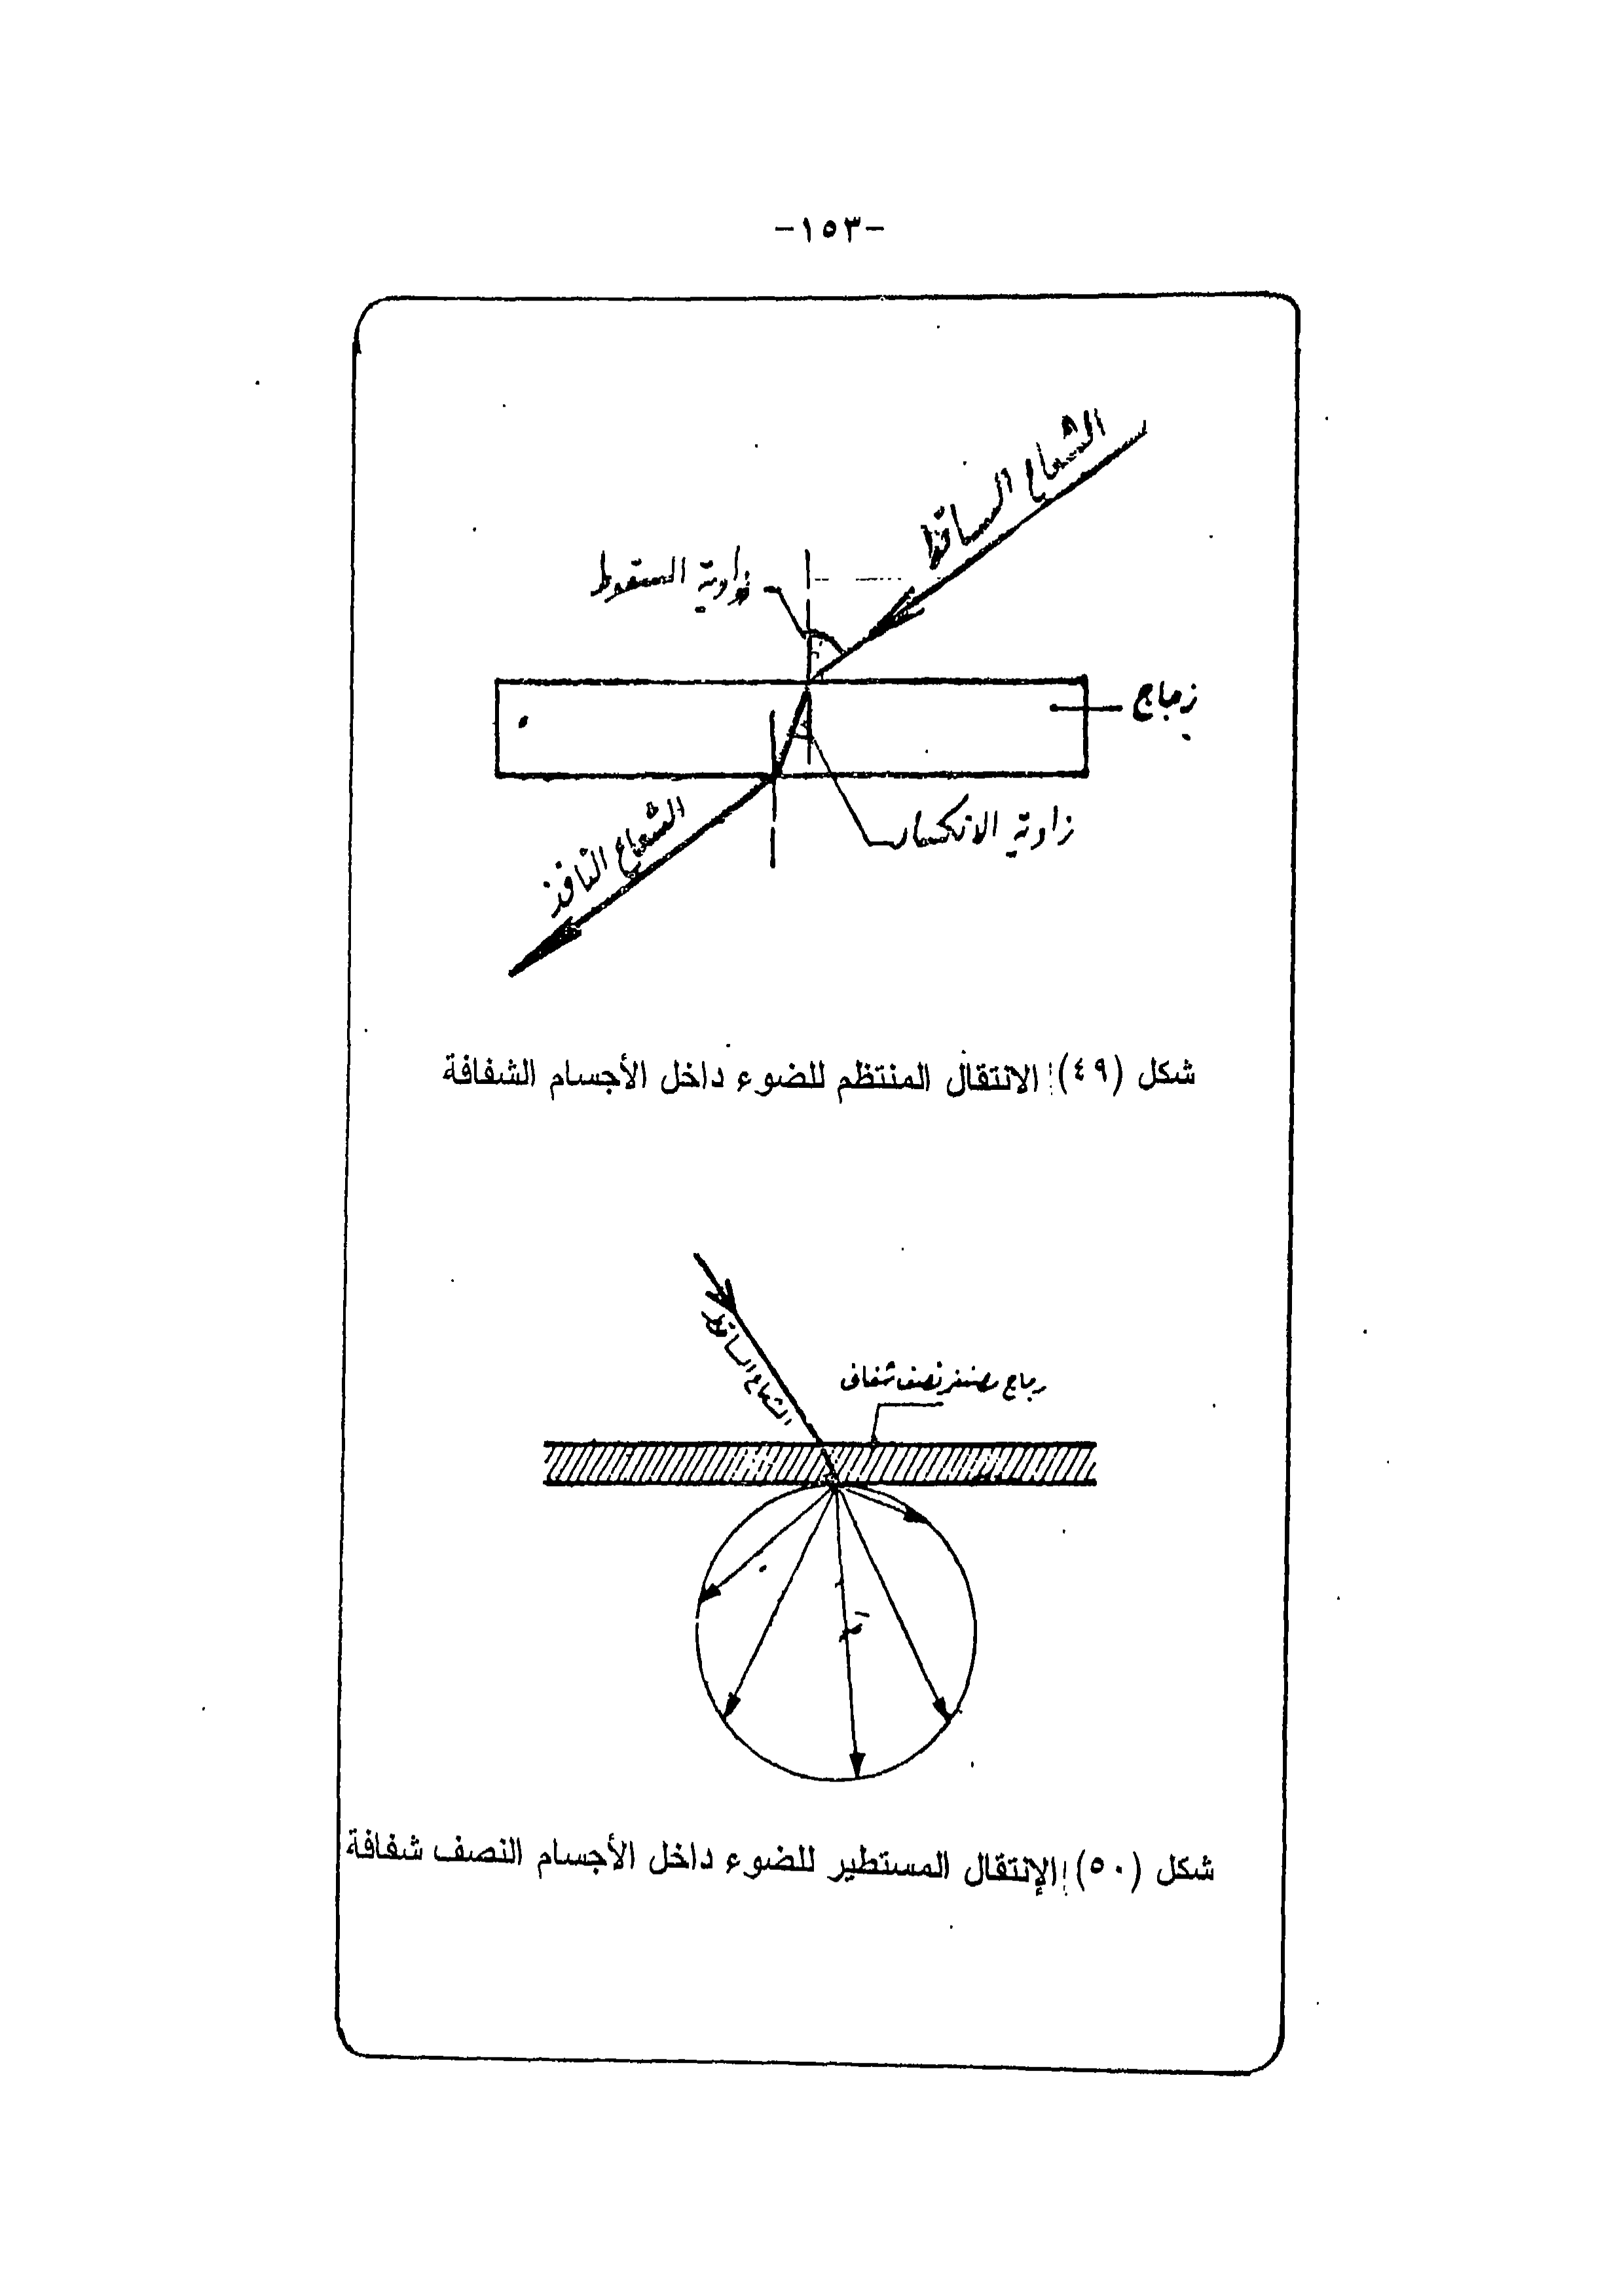 -١٥٣-
الشعاع الساقط
زاوية السقوط
زجاج
زاوية الانكسار
الشعاع النافذ
شكل (٤٩): الانتقال المنتظم للضوء داخل الأجسام الشفافة
الشعاع الساقط
زجاج مصنفر نصف شفاف
شكل (٥٠): الإنتقال المستطير للضوء داخل الأجسام النصف شفافة